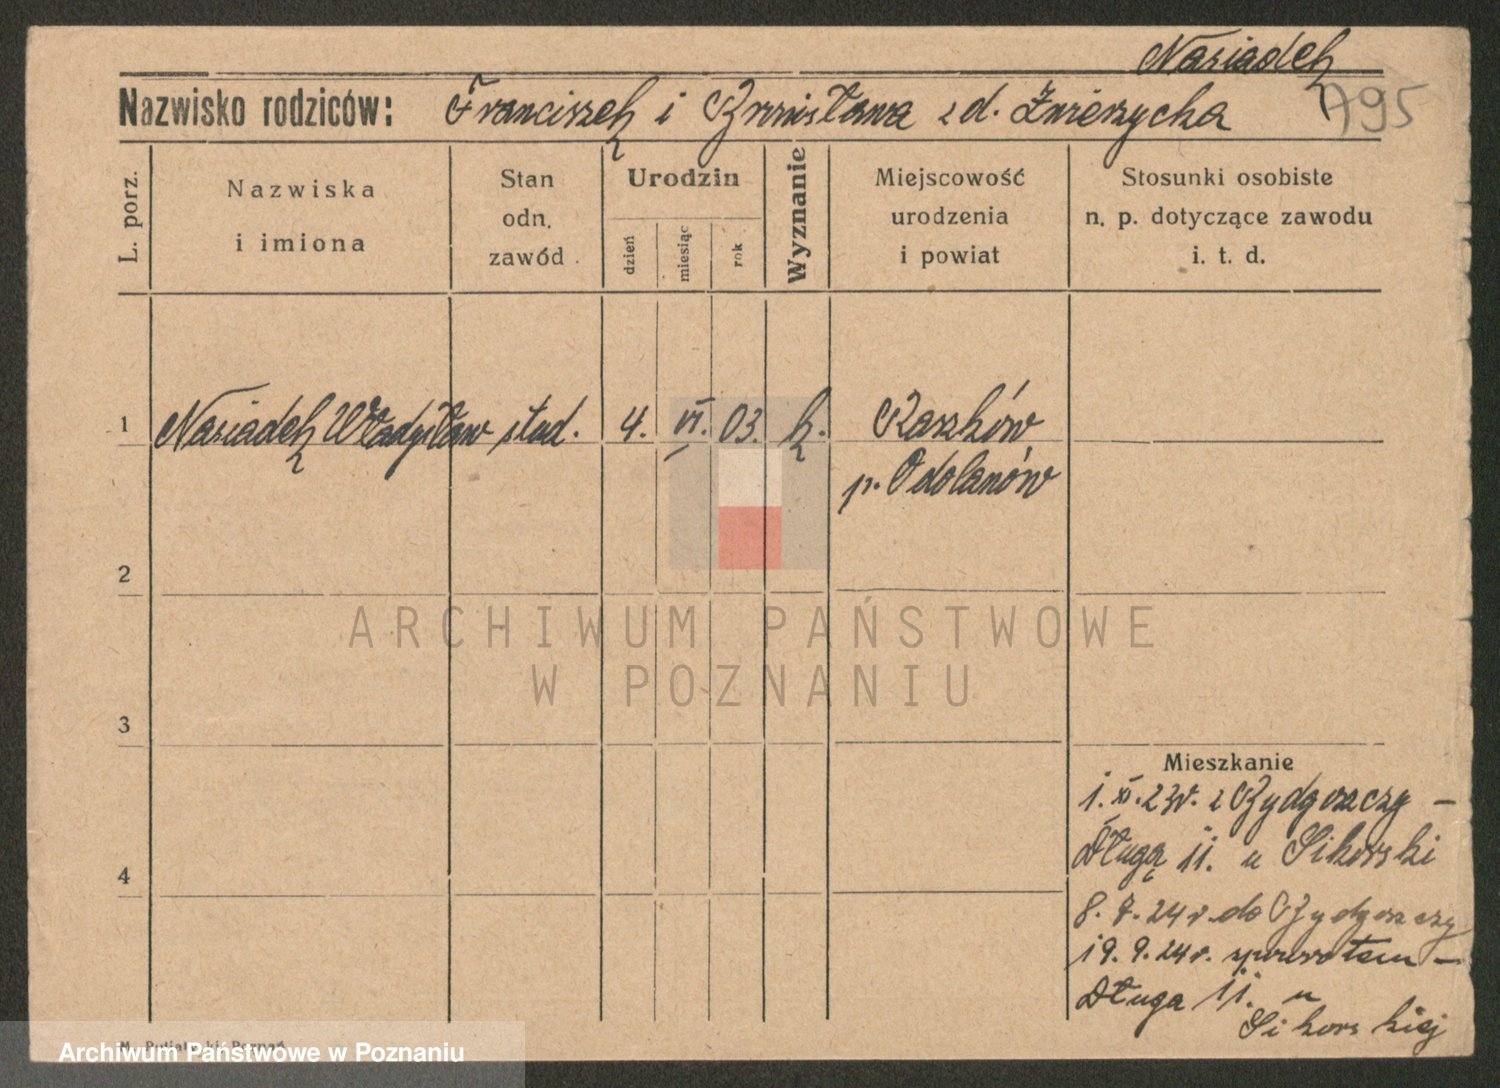 Nasiadek
Nazwisko rodziców: Franciszek i Bronisława z d. Zwierzycka 795
L. porz.
Nazwiska
i imiona
Stan
odn.
zawód
Urodzin
dzień
miesiąc
rok
Wyznanie
Miejscowość
urodzenia
i powiat
Stosunki osobiste
n. p. dotyczące zawodu
i. t. d.
1 Nasiadek Władysław stud. 4. VI. 03. k. Raszków
p. Odolanów
2
ARCHIWUM PAŃSTWOWE
W POZNANIU
3
Mieszkanie
1. XI. 23r. z Bydgoszczy –
Długa 11. u Sikorski
4
8. 7. 24 r. do Bydgoszczy
19. 9. 24 r. zpowrotem –
Długa 11. u
Sikorskiej
Archiwum Państwowe w Poznaniu